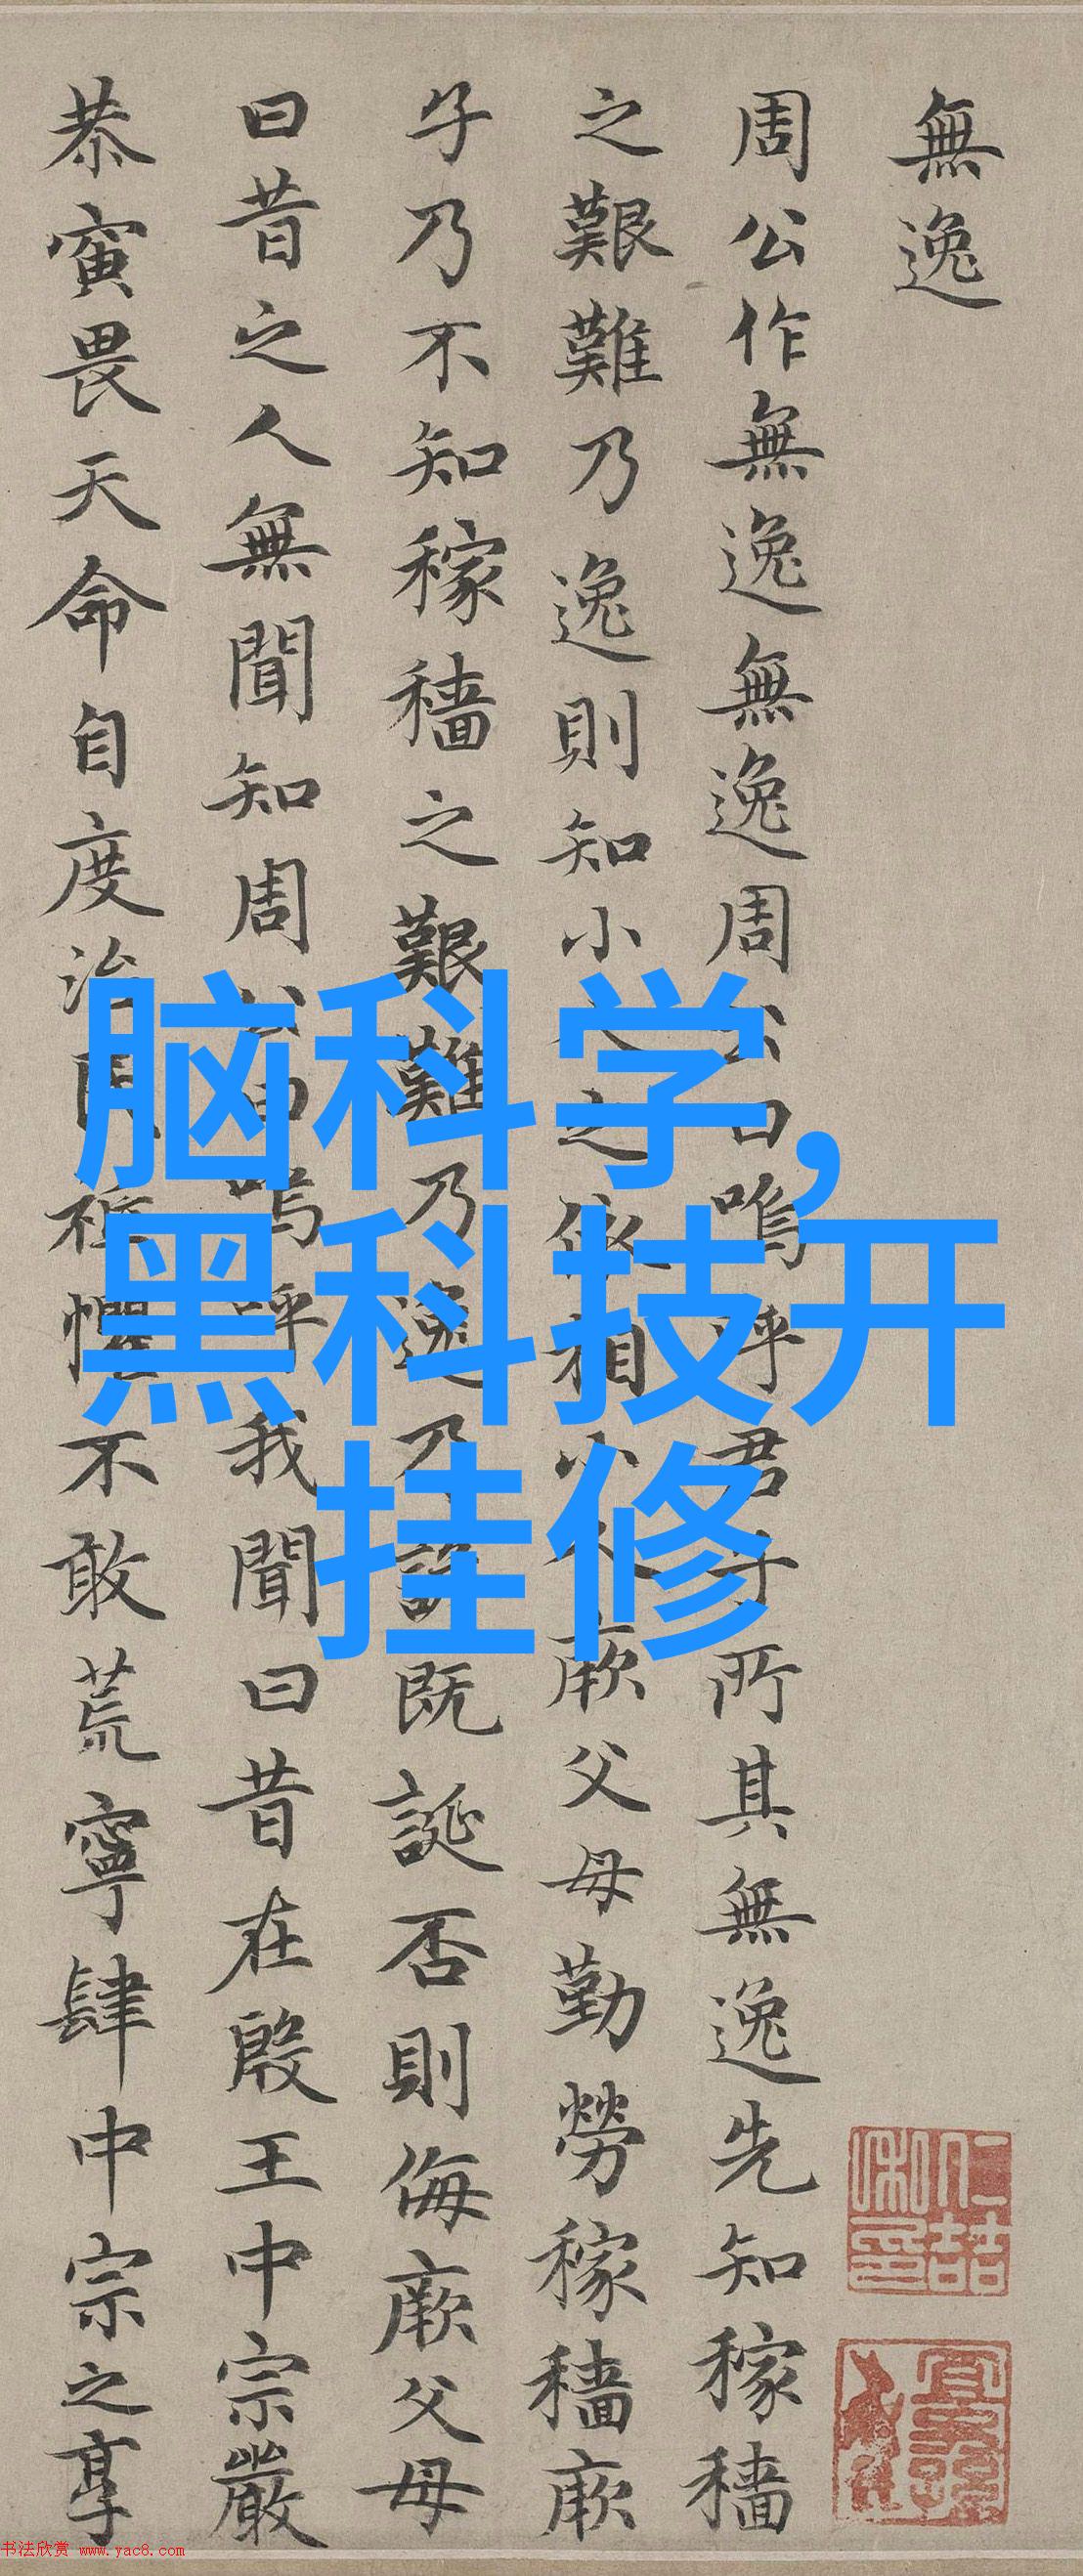 無逸
周公作無逸無逸周公曰嗚呼君子所其無逸先知稼穡
之艱難乃逸則知小人之依相小人厥父母勤勞稼穡厥
子乃不知稼穡之艱難乃逸乃諺既誕否則侮厥父母
曰昔之人無聞知周公曰嗚呼我聞曰昔在殷王中宗嚴
恭寅畏天命自度治民祗懼不敢荒寧肆中宗之享
脑科学,
黑科技开
挂修
书法欣赏 www.yac8.com